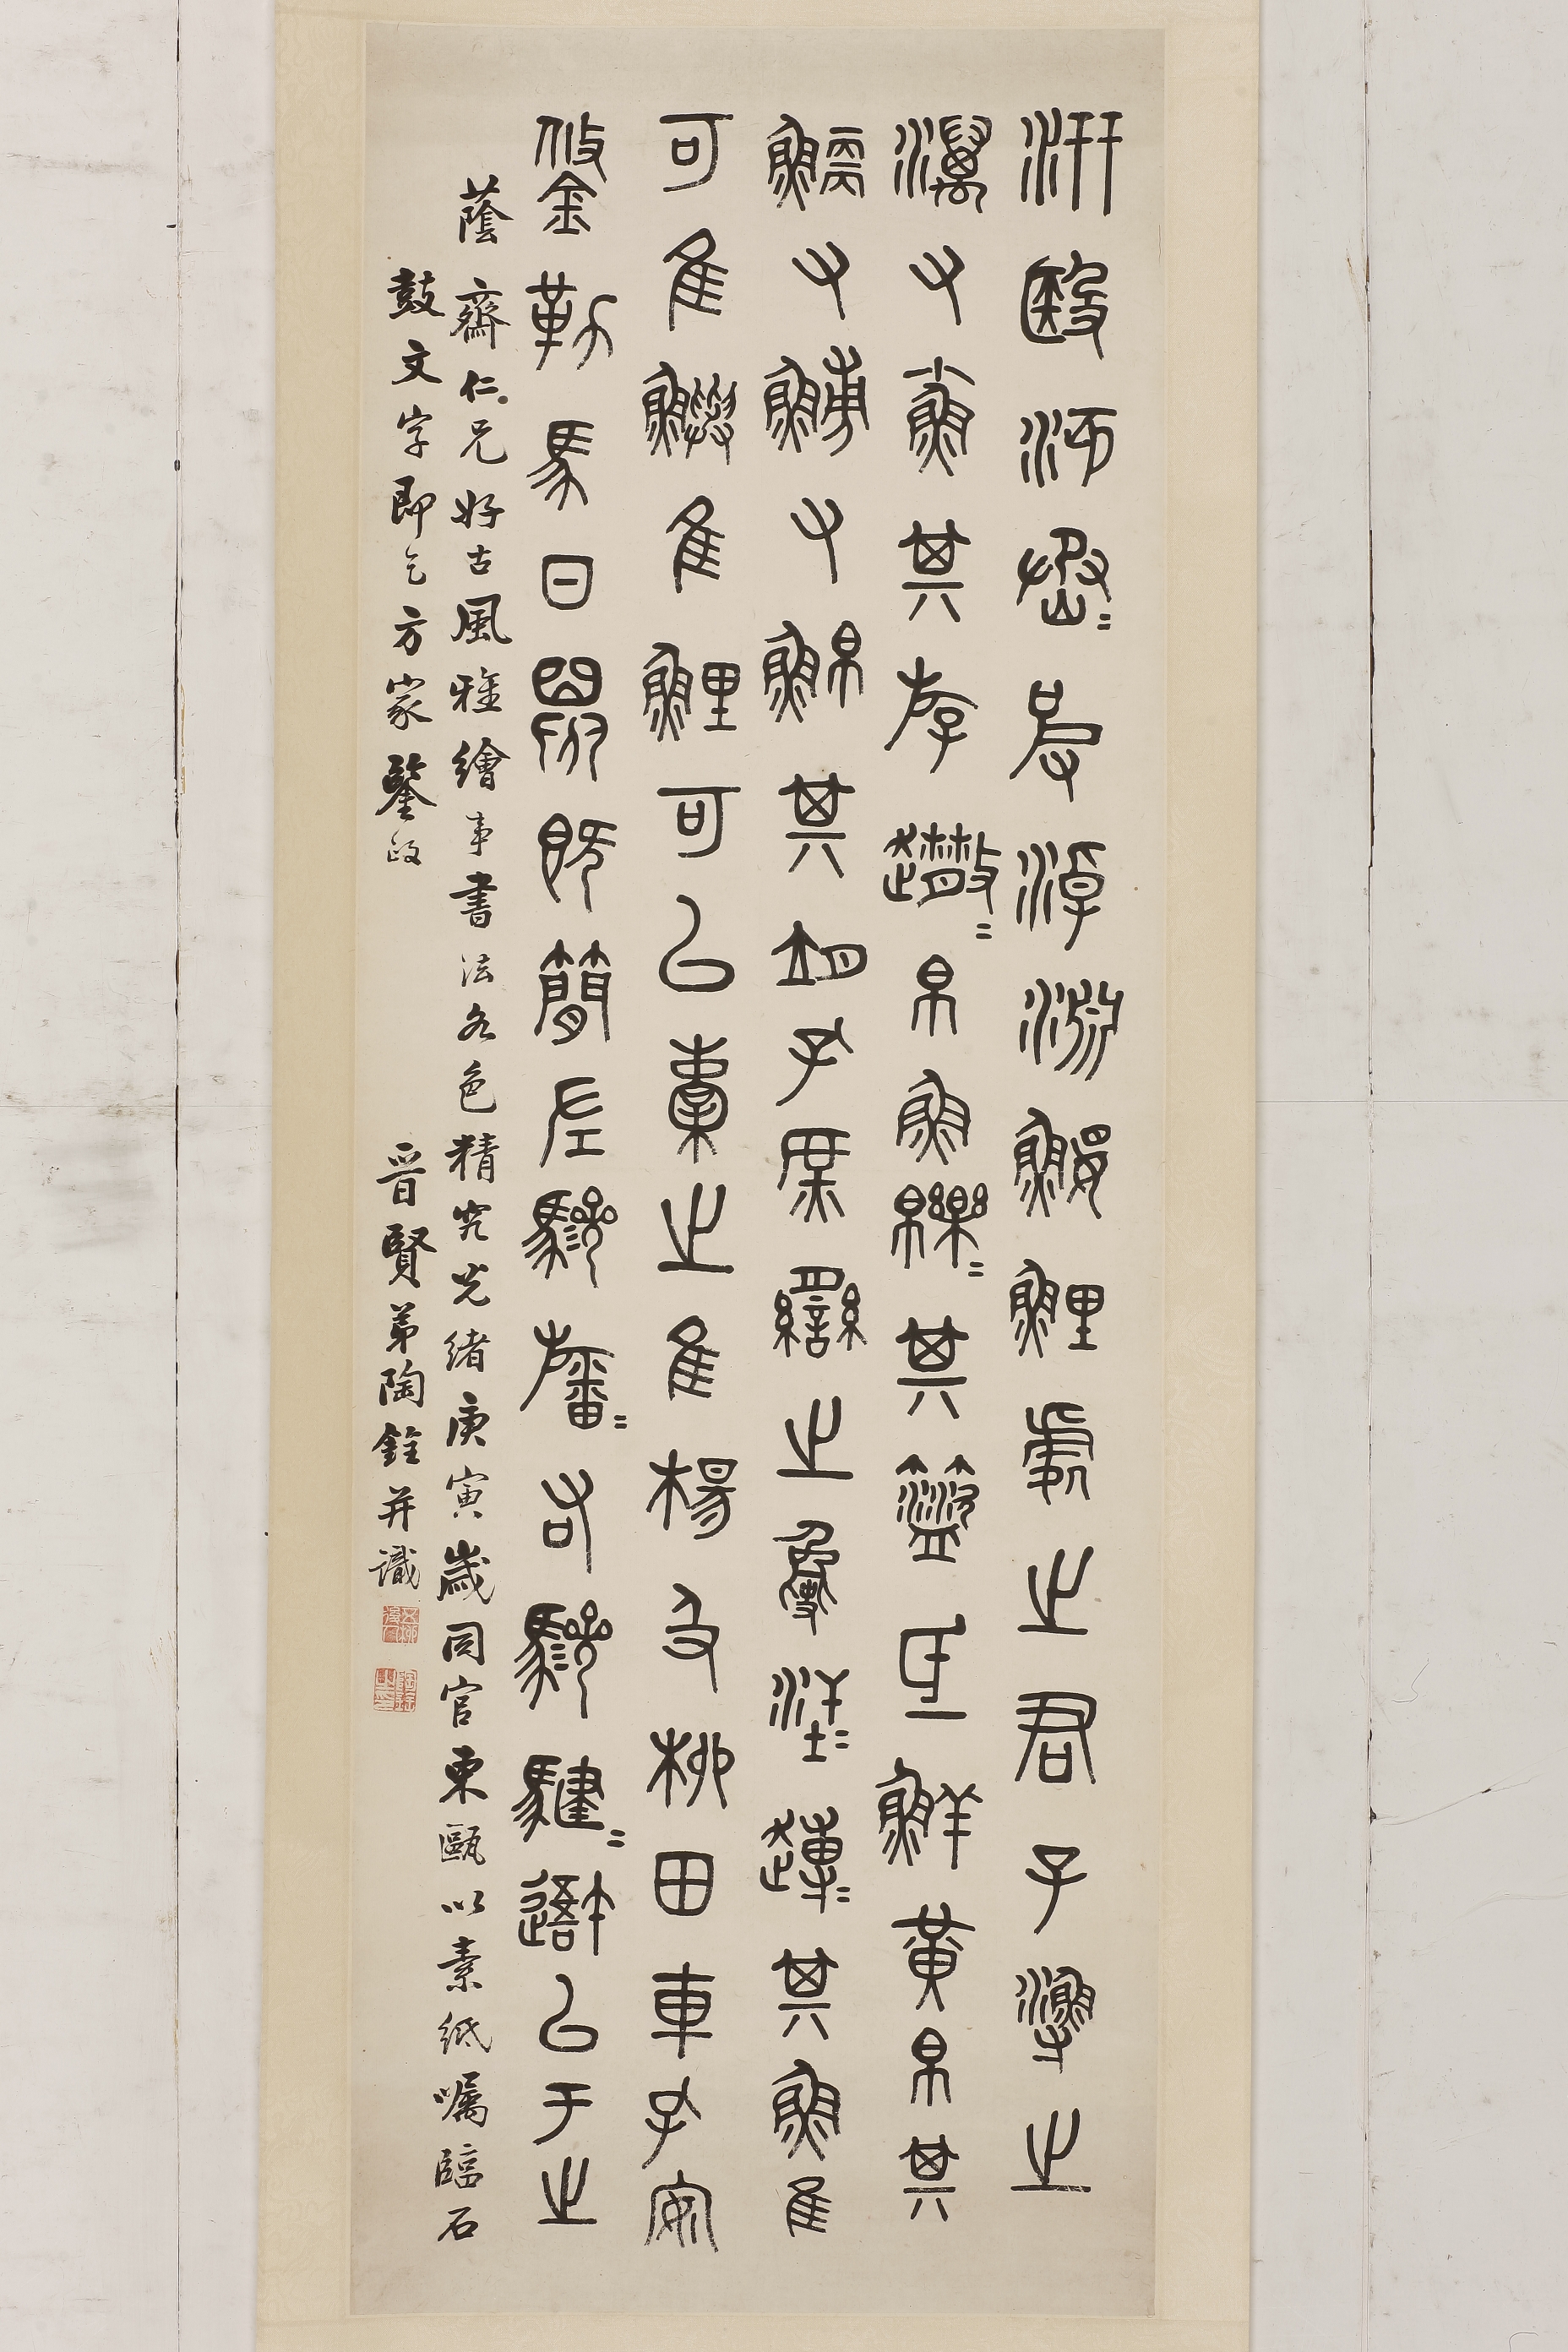 汧殹沔丞＝皮淖淵鰋鯉處之君子漁之
澫又小魚其斿趣＝帛魚皪＝其盜氐鮮黃帛其
鯾又鱄又鮊其朏孔庶臠之夐汗＝趙＝其魚隹
可隹鱮隹鯉可以橐之隹楊及柳田車孔安
鋚勒馬曰既簡左驂旛＝右驂騝＝以于之
蔭齋仁兄好古風雅繪事書法各色精究光緒庚寅歲同官東甌以素紙囑臨石
鼓文字即乞方家鑒政
晉賢弟陶銓并識
五柳後人
陶銓之印